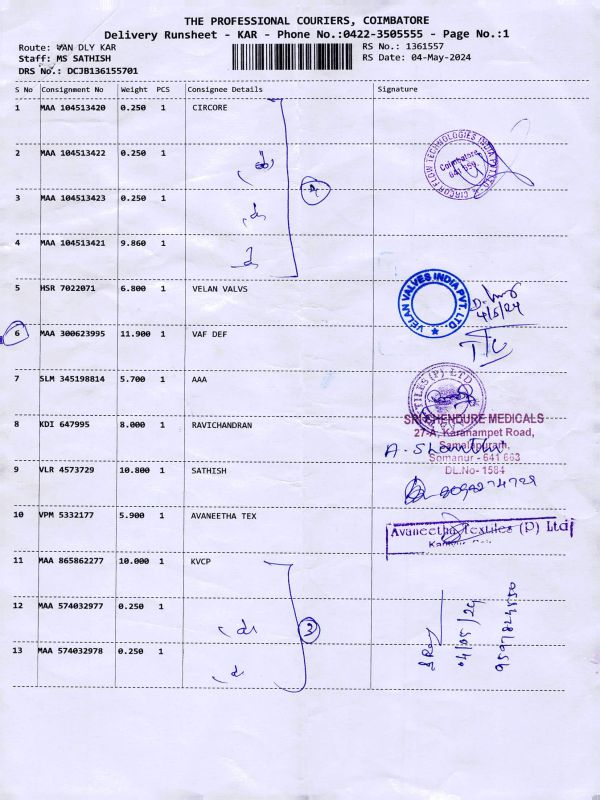 THE PROFESSIONAL COURIERS, COIMBATORE
Delivery Runsheet - KAR - Phone No.:0422-3505555 - Page No.:1
Route: VAN DLY KAR
RS No.: 1361557
Staff: MS SATHISH
RS Date: 04-May-2024
DRS No.: DCJB136155701
S No Consignment No Weight PCS Consignee Details Signature
1 MAA 104513420 0.250 1 CIRCORE
2 MAA 104513422 0.250 1
CIRCOR FLOW TECHNOLOGIES INDIA PVT LTD
Coimbatore
3 MAA 104513423 0.250 1
4
4 MAA 104513421 9.860 1
5 HSR 7022071 6.800 1 VELAN VALVS
VELAN VALVES INDIA PVT. LTD.
4/5/24
6 MAA 300623995 11.900 1 VAF DEF
7 SLM 345198814 5.700 1 AAA
SRI SHENDURE MEDICALS
8 KDI 647995 8.000 1 RAVICHANDRAN
27-A, Karanampet Road,
Samalapuram,
Somanur - 641 663
DL.No- 1584
9 VLR 4573729 10.800 1 SATHISH
10 VPM 5332177 5.900 1 AVANEETHA TEX
Avaneetha Textiles (P) Ltd
11 MAA 865862277 10.000 1 KVCP
12 MAA 574032977 0.250 1
3
04/05/24
13 MAA 574032978 0.250 1